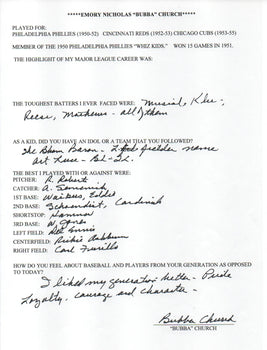 *****EMORY NICHOLAS "BUBBA" CHURCH*****
PLAYED FOR:
PHILADELPHIA PHILLIES (1950-52) CINCINNATI REDS (1952-53) CHICAGO CUBS (1953-55)
MEMBER OF THE 1950 PHILADELPHIA PHILLIES "WHIZ KIDS." WON 15 GAMES IN 1951.
THE HIGHLIGHT OF MY MAJOR LEAGUE CAREER WAS:
THE TOUGHEST BATTERS I EVER FACED WERE: Musial,
Mathews - all of them
AS A KID, DID YOU HAVE AN IDOL OR A TEAM THAT YOU FOLLOWED?
The Bham Baron - 2 fielder name
Art Luce -
THE BEST I PLAYED WITH OR AGAINST WERE:
PITCHER: R. Roberts
CATCHER: A. Seminick
1ST BASE: Waitkus, Eddie
2ND BASE: Schoendist, Cardinals
SHORTSTOP: Hamner
3RD BASE: W. Jones
LEFT FIELD: Del Ennis
CENTERFIELD: Richie Ashburn
RIGHT FIELD: Carl Furillo
HOW DO YOU FEEL ABOUT BASEBALL AND PLAYERS FROM YOUR GENERATION AS OPPOSED
TO TODAY?
I liked my generation better - Pride
Loyalty, courage and character -
Bubba Church
"BUBBA" CHURCH